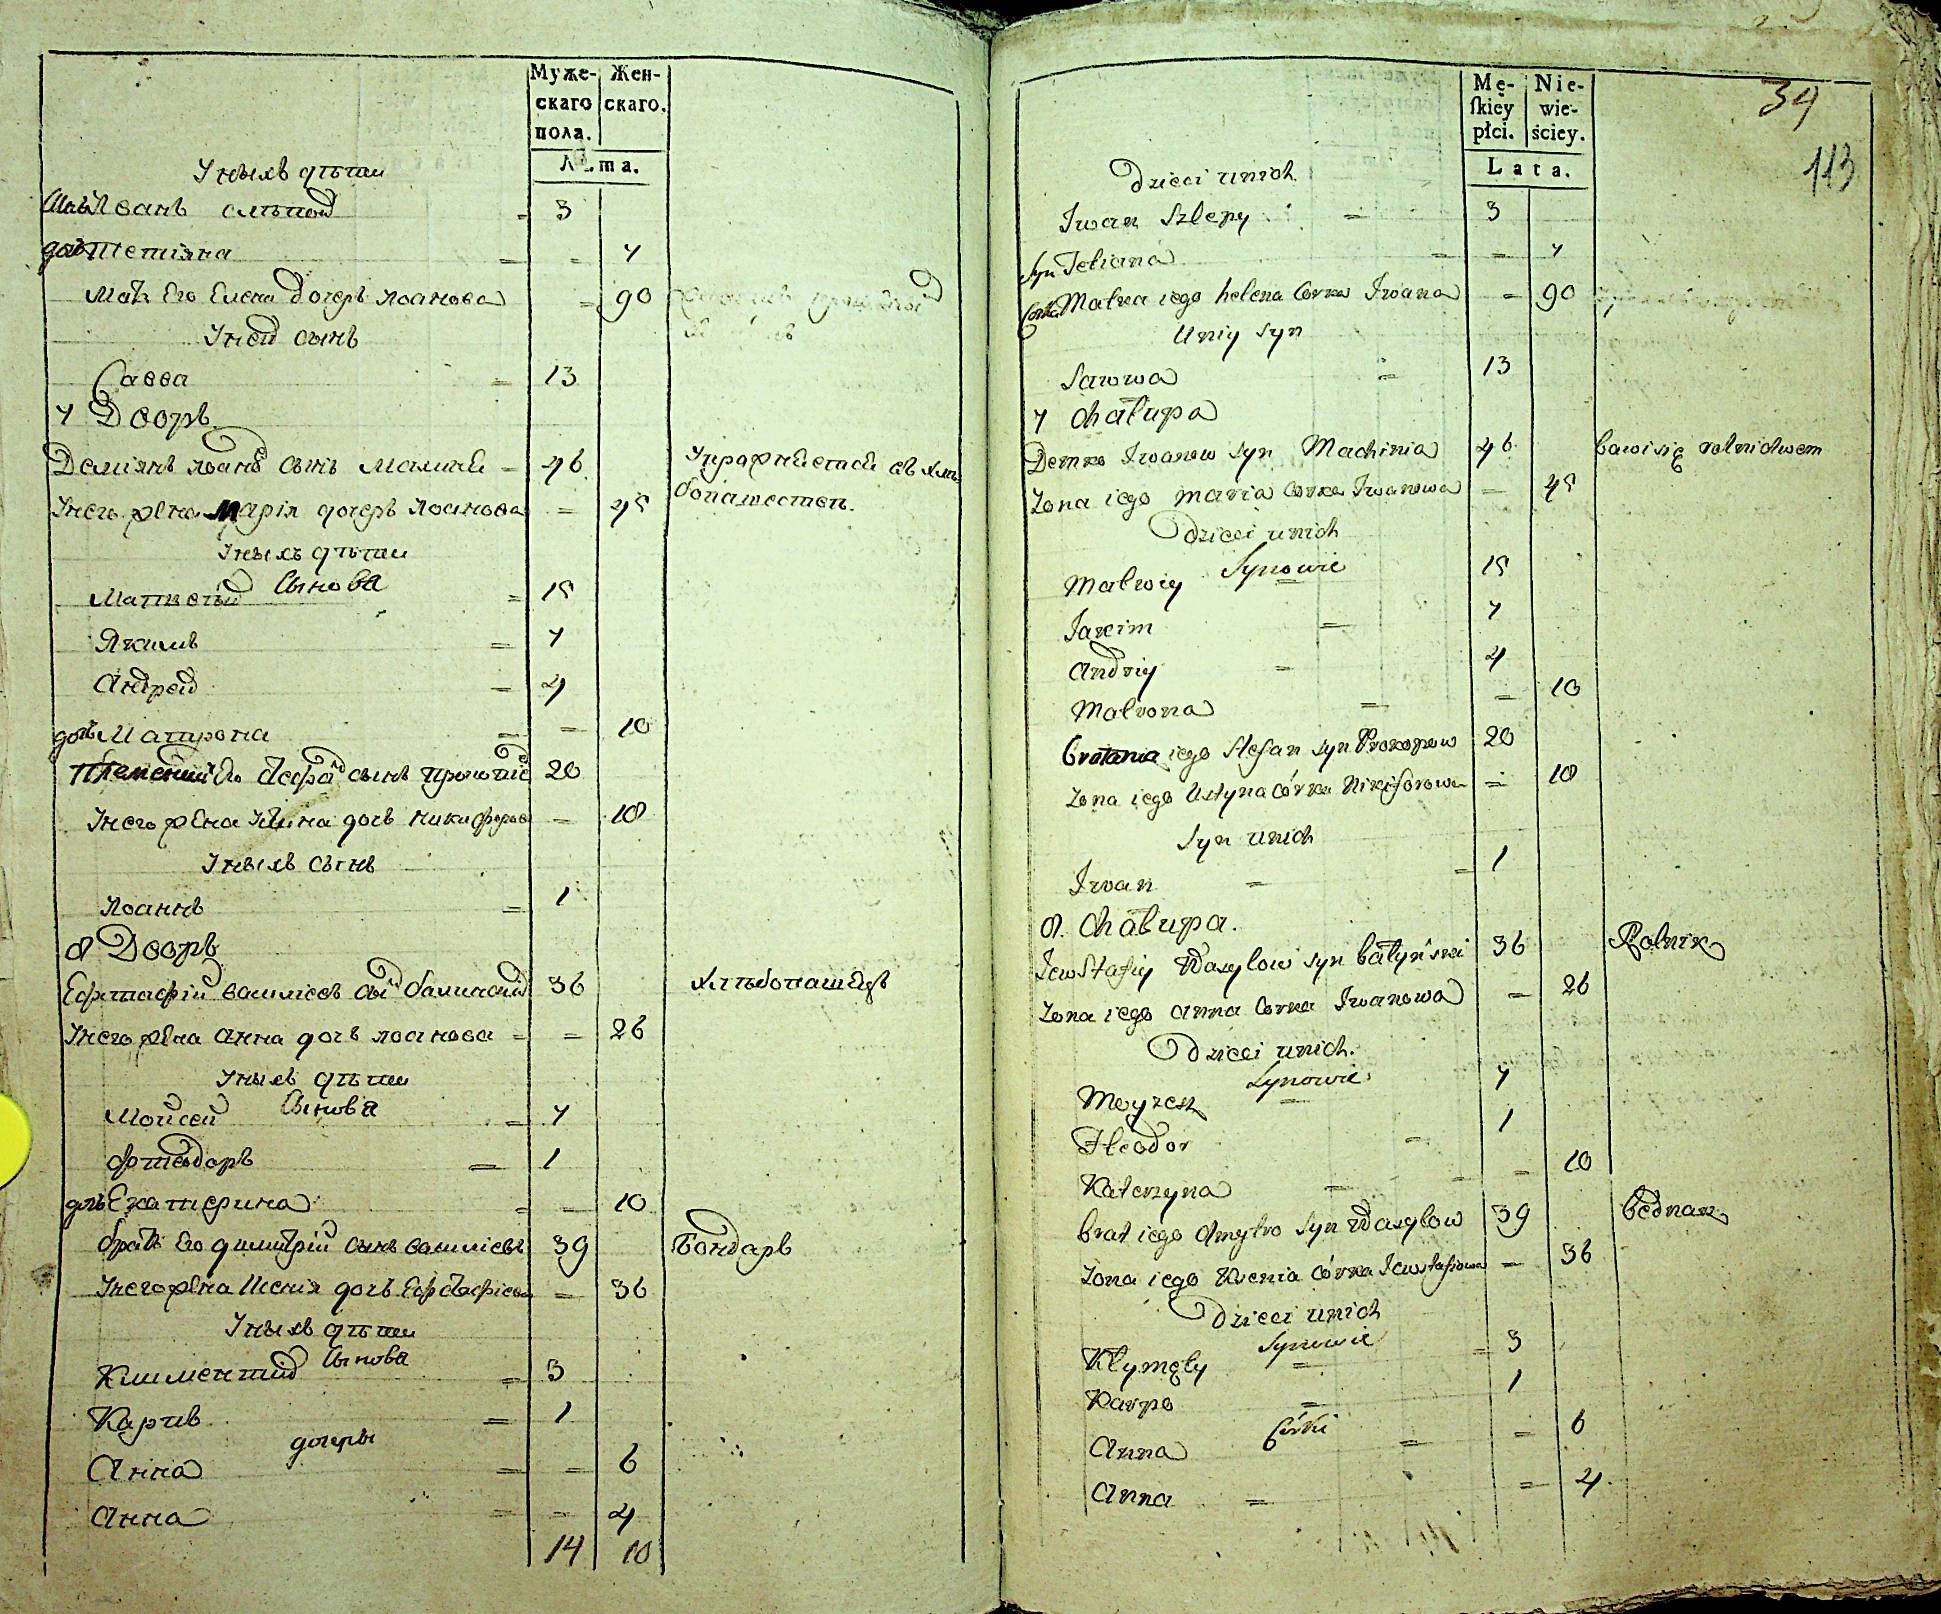 Муже- Жен-
скаго скаго.
пола.
Лѣта.
У ныхъ дѣти
Иванъ слѣпой = 3
дочь Тетіяна = = 7
Мать Его Елена дочерь Иоанова = 90
У ней сынъ
Савва = 13
7 Дворъ
Деміянъ Иоановъ сынъ = 46 Упражняется въ хлѣ-
У него жена Марія дочерь Иоанова = 45 бопашествѣ.
У ныхъ дѣти
Сынова
Матвей = 15
Якимъ = 7
Андрей = 4
дочь Матрона = = 10
Племенникъ Его Стефанъ сынъ 20
У него жена дочь Никифорова = 18
У ныхъ сынъ
Иоаннъ = 1
8 Дворъ
Евстафій Василіевъ сынъ 36 Хлѣбопашецъ
У него жена Анна дочь Иоанова = = 26
У ныхъ дѣти
Сынова
Мойсей = 7
Фтеодоръ = 1
дочь Екатерина = = 10
братъ Его Димитрій сынъ Василіевъ 39 Бондарь
У него жена Ксенія дочь Евстафіева = 36
У ныхъ дѣти
Сынова
Климентій = 3
Карпъ = 1
дочеры
Анна = = 6
Анна = = 4
14 10
34
113
Mę- Nie-
skiey wie-
płci. ściey.
Lata.
Dzieci unich
Iwan Szlepy = 3
Syn Tetiana = = 7
Corka Matka iego helena Corka Iwana = 90
Uniy Syn
Sawwa = 13
7 Chałupa
Demko Iwanow Syn Machinia 46 bawi się rolnictwem
Zona iego Maria Corka Iwanowa = 45
Dzieci unich
Synowie
Matwiy = 15
Jakim = 7
Andriy = 4
Matrona = = 10
Bratania iego Stefan Syn Prokopow 20
Zona iego Ustyna Córka Nikiforowa = 18
Syn unich
Iwan = = 1
8. Chałupa.
Jewstafiy Wasylow Syn Bałyński 36 Rolnik
Zona iego Anna Corka Iwanowa = 26
Dzieci unich.
Synowie
Moyzesz = 7
Fteodor = 1
Katerzyna = = 10
brat iego Dmytro Syn Wasylow 39 bednarz
Zona iego Ksenia Córka Jewstafiowa = 36
Dzieci unich
Synowie
Kłymęty = = 3
Karpo = 1
Córki
Anna = = 6
Anna = = 4